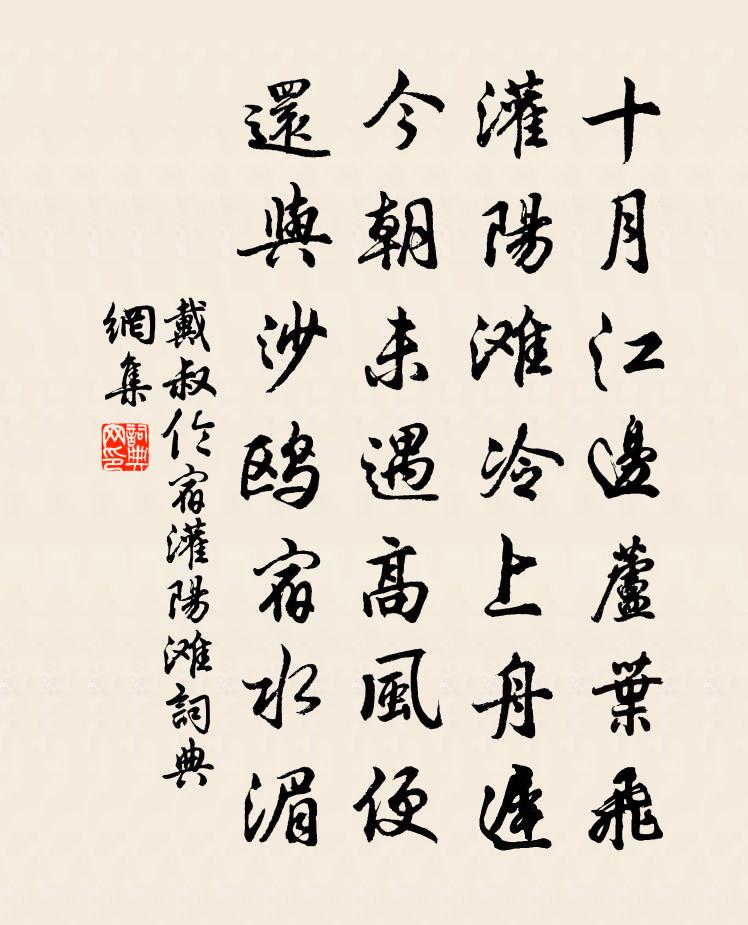 十月江邊蘆葉飛
灌陽滩冷上舟遲
今朝未遇高風便
還與沙鸥宿水湄
戴叔伦宿灌陽滩詞典
網集
詞典
网印